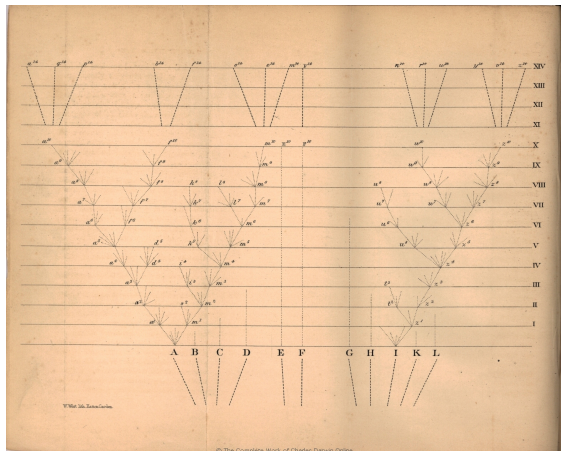 a¹⁴ q¹⁴ p¹⁴ b¹⁴ f¹⁴ o¹⁴ e¹⁴ m¹⁴ n¹⁴ r¹⁴ w¹⁴ y¹⁴ v¹⁴ z¹⁴ XIV
XIII
XII
XI
a¹⁰ f¹⁰ m¹⁰ E¹⁰ F¹⁰ w¹⁰ z¹⁰ X
a⁹ f⁹ m⁹ w⁹ z⁹ IX
a⁸ f⁸ k⁸ l⁸ m⁸ u⁸ w⁸ z⁸ VIII
a⁷ f⁷ k⁷ l⁷ m⁷ u⁷ w⁷ z⁷ VII
a⁶ f⁶ k⁶ m⁶ u⁶ z⁶ VI
a⁵ d⁵ k⁵ m⁵ u⁵ z⁵ V
a⁴ d⁴ i⁴ m⁴ z⁴ IV
a³ i³ m³ t³ z³ III
a² s² m² t² z² II
a¹ m¹ z¹ I
A B C D E F G H I K L
W. West lith. Hatton Garden.
© The Complete Work of Charles Darwin Online